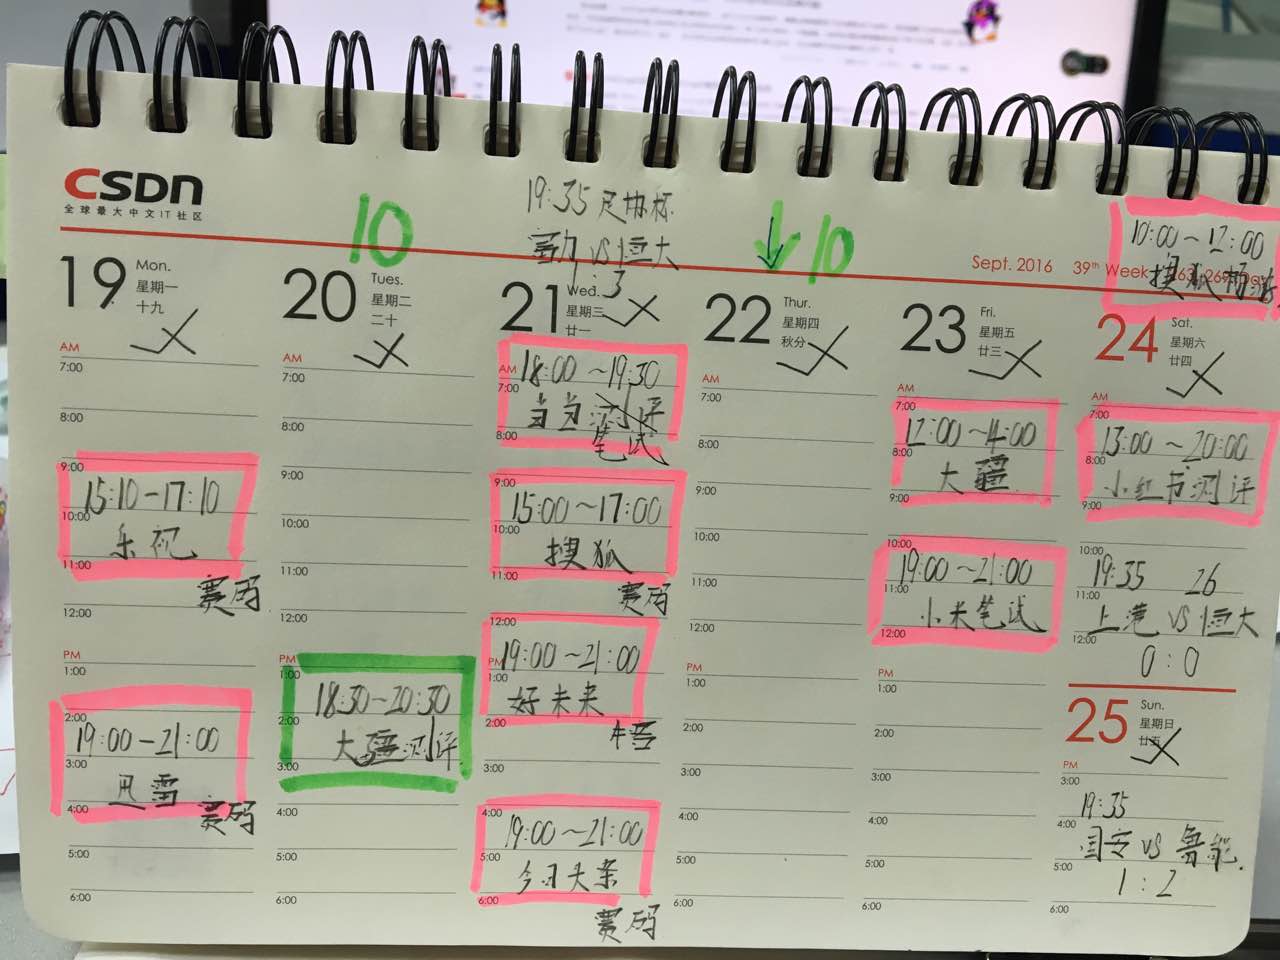 CSDN
全球最大中文IT社区
10
19:35 足协杯
苏宁 VS 恒大
1:3
10
Sept. 2016 39th Week
10:00~12:00
搜狐
19 Mon. 星期一 十九
AM
7:00
8:00
9:00
15:10-17:10
10:00
乐视
11:00
赛码
12:00
PM
1:00
2:00
19:00-21:00
3:00
迅雷
4:00
赛码
5:00
6:00
20 Tues. 星期二 二十
AM
7:00
8:00
9:00
10:00
11:00
12:00
PM
1:00
18:30~20:30
2:00
大疆测评
3:00
4:00
5:00
6:00
21 Wed. 星期三 廿一
AM
18:00~19:30
7:00
当当测评
笔试
8:00
9:00
15:00~17:00
10:00
搜狐
11:00
赛码
12:00
PM
19:00~21:00
1:00
好未来
2:00
牛客
3:00
4:00
19:00~21:00
5:00
今日头条
6:00
赛码
22 Thur. 星期四 秋分
AM
7:00
8:00
9:00
10:00
11:00
12:00
PM
1:00
2:00
3:00
4:00
5:00
6:00
23 Fri. 星期五 廿三
AM
7:00
12:00~14:00
8:00
大疆
9:00
10:00
19:00~21:00
11:00
小米笔试
12:00
PM
1:00
2:00
3:00
4:00
5:00
6:00
24 Sat. 星期六 廿四
AM
7:00
13:00~20:00
8:00
小红书测评
9:00
10:00
19:35 26
11:00
上港 VS 恒大
12:00
0:0
25 Sun. 星期日 廿五
PM
3:00
19:35
4:00
国安 VS 鲁能
5:00
1:2
6:00